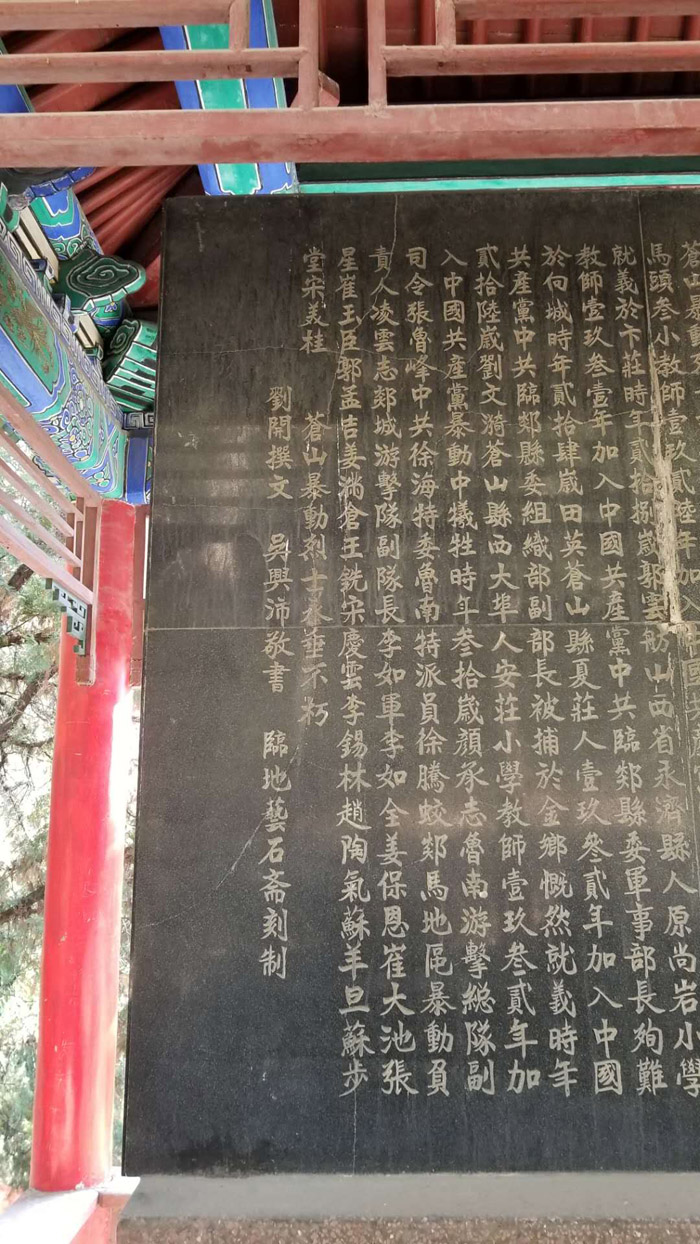 馬頭叁小教師壹玖貳陸年加
山西省永濟縣人原尚岩小學
就義於卞莊時年貳拾捌歲郭雲舫
教師壹玖叁壹年加入中國共產黨中共臨郯縣委軍事部長殉難
於向城時年貳拾肆歲田英蒼山縣夏莊人壹玖叁貳年加入中國
共產黨中共臨郯縣委組織部副部長被捕於金鄉慨然就義時年
貳拾陸歲劉文漪蒼山縣西大埠人安莊小學教師壹玖叁貳年加
入中國共產黨暴動中犧牲時年叁拾歲顏承志魯南游擊總隊副
司令張魯峰中共徐海特委魯南特派員徐騰蛟郯馬地區暴動負
責人凌雲志郯城游擊隊副隊長李如軍李如全姜保恩崔大池張
星崔王臣郭孟吉姜瑞倉王銑宋慶雲李錫林趙陶氣蘇羊旦蘇步
堂宋美桂
蒼山暴動烈士永垂不朽
劉開撰文 吳興沛敬書 臨地藝石斋刻制